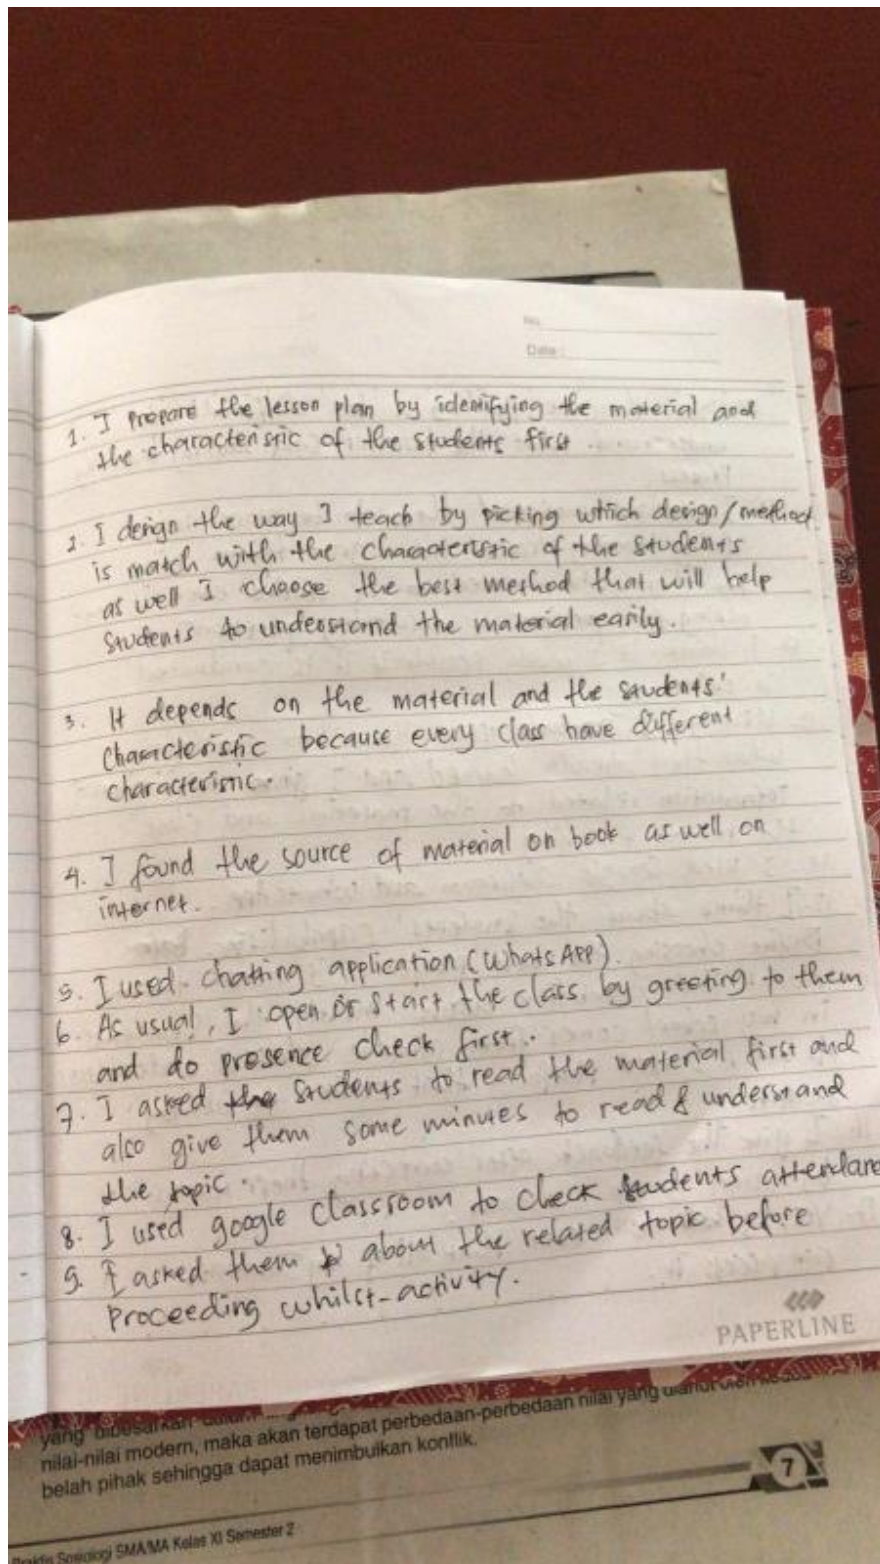 No.
Date :
1. I prepare the lesson plan by identifying the material and
the characteristic of the students first.
2. I design the way I teach by picking which design/method
is match with the characteristic of the students
as well I choose the best method that will help
students to understand the material easily.
3. It depends on the material and the students'
characteristic because every class have different
characteristic.
4. I found the source of material on book as well on
internet.
5. I used chatting application (WhatsApp).
6. As usual, I open or start the class by greeting to them
and do presence check first.
7. I asked the students to read the material first and
also give them some minutes to read & understand
the topic.
8. I used google classroom to check students attendance
9. I asked them about the related topic before
proceeding whilst-activity.
PAPERLINE
yang dibesarkan
nilai-nilai modern, maka akan terdapat perbedaan-perbedaan nilai yang dianut oleh kedua
belah pihak sehingga dapat menimbulkan konflik.
7
Praktis Sosiologi SMA/MA Kelas XI Semester 2